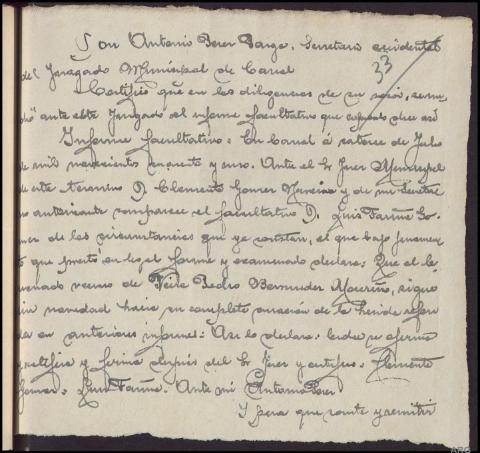 Don Antonio Perez Vargo, Secretario accidental
33
del Juzgado Municipal de Carral
Certifico que en las diligencias de su razón,
ante este Juzgado el informe facultativo que copiado dice así
Informe facultativo: En Carral á catorce de Julio
de mil novecientos cuarenta y uno. Ante el Sr Juez Municipal
de este termino D. Clemente Gomez y de mi Secretario
autorizante comparece el facultativo D. Luis Fariña Go-
mez de las circunstancias que ya constan, el que bajo juramen
to que prestó en legal forma y examinado declara: Que el le
sionado vecino de Pedro Bermudez Moureiro, sigue
sin novedad hacia su completa curación de la herida referi
da en anteriores informes: Así lo declara: leida se afirma
y ratifica y firma después del Sr Juez y certifico. Clemente
Gomez: Luis Fariña. Ante mi Antonio Perez
Y para que conste y remitir
ARG